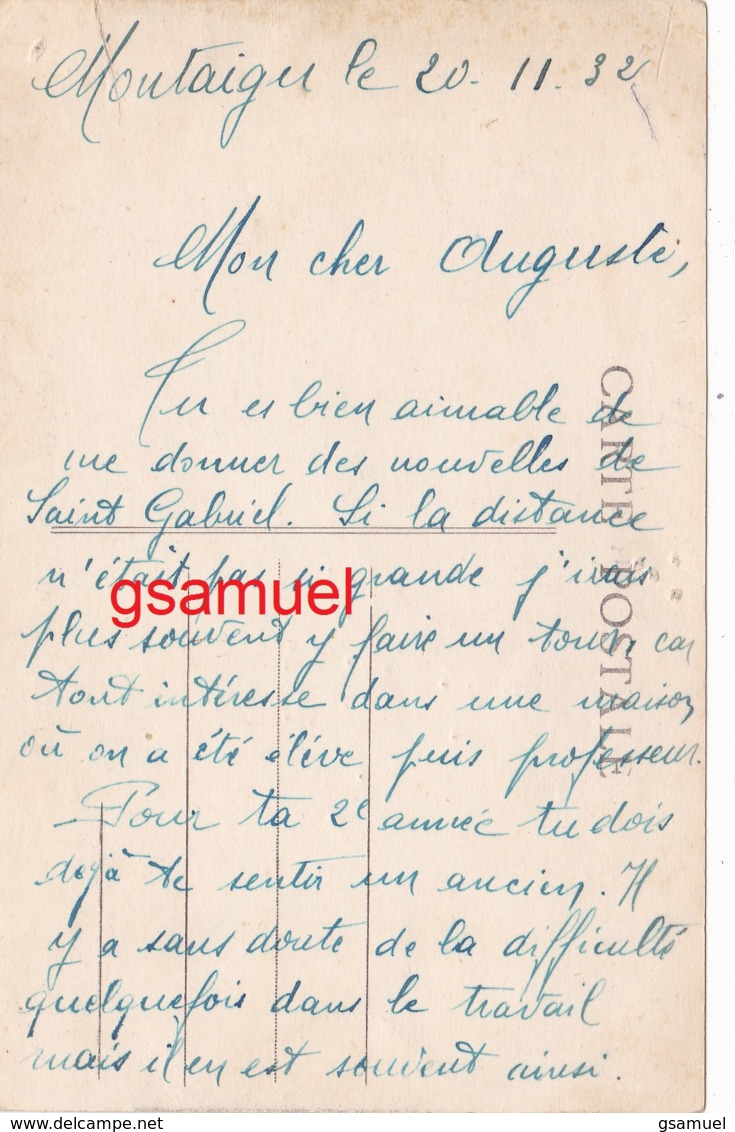 Montaigu le 20-11-32
Mon cher Auguste,
Tu es bien aimable de
me donner des nouvelles de
Saint Gabriel. Si la distance
n'était pas si grande j'irais
plus souvent y faire un tour, car
tout intéresse dans une maison
où on a été élève puis professeur.
Pour ta 2e année tu dois
dejà te sentir un ancien. Il
y a sans doute de la difficulté
quelquefois dans le travail
mais il en est souvent ainsi.
CARTE POSTALE
gsamuel
gsamuel